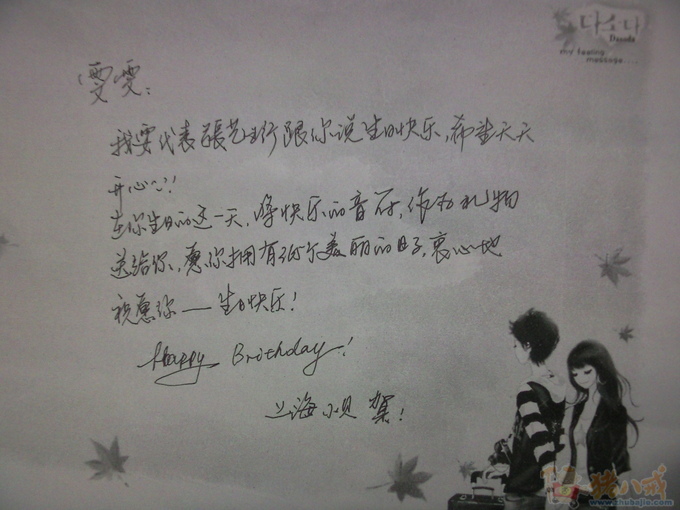 다소나
Dasoda
my feeling
message....
雯雯：
我要代表張艺行跟你说生日快乐，希望天天
开心~!!
在你生日的这一天，将快乐的音符，作为礼物
送给你，愿你拥有365个美丽的日子，衷心地
祝愿你——生日快乐！
Happy Brithday!
上海小贝 贺！
猪八戒
www.zhubajie.com